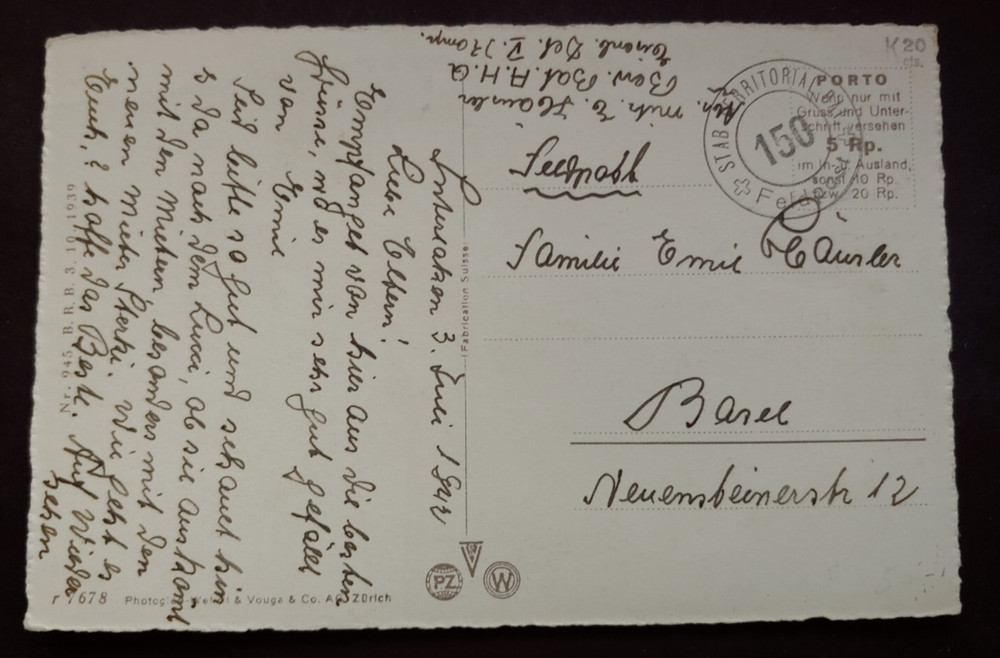 Interlaken 3. Juli 1942
Liebe Eltern!
Empfanget von hier aus die besten
Grüsse, wo es mir sehr gut gefällt
von Emil
Seid bitte so gut und schauet hin
& da nach dem Luci, ob sie auskomt
mit den Mietern besonders mit den
neuen Mieter Sterki. Wie geht es
Euch,? hoffe das Beste. Auf Wieder
sehen
Nr. 945 B. R. B. 3. 10. 1939
r 7678 Photogr. & Vouga & Co. A.G. Zürich
Fabrication Suisse
PZ
W
mitr. E. Häusler
Bew. Bat. A.H.Q.
Det.
K 20
cts.
PORTO
Wenn nur mit
Gruss und Unter-
schrift versehen
5 Rp.
im In- u. Ausland,
sonst 10 Rp.
bzw. 20 Rp.
STAB TERRITORIAL
150
Feldpost
Feldpost
Familie Emil Häusler
Basel
Neuensteinerstr 12